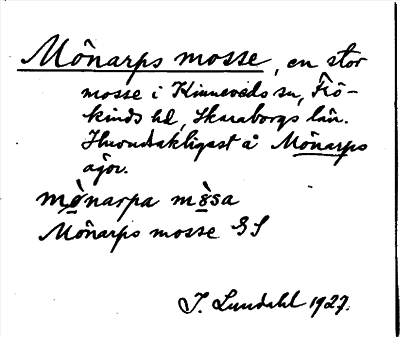 Mönarps mosse, en stor
mosse i Kinneveds sn, Frö-
kinds hd, Skaraborgs län.
Huvudsakligast å Mönarps
ägor.
mø̀narpa mò̱sa
Mönarps mosse GS
J. Lundahl 1927.